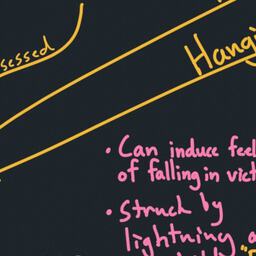 ssessed
Hangi
• Can induce feel
of falling in vict
• Struck by
lightning